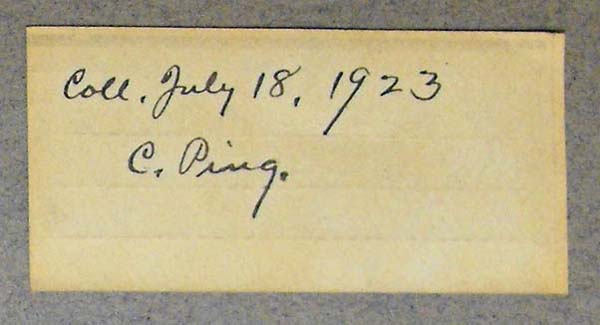 Coll. July 18, 1923
C. Ping.